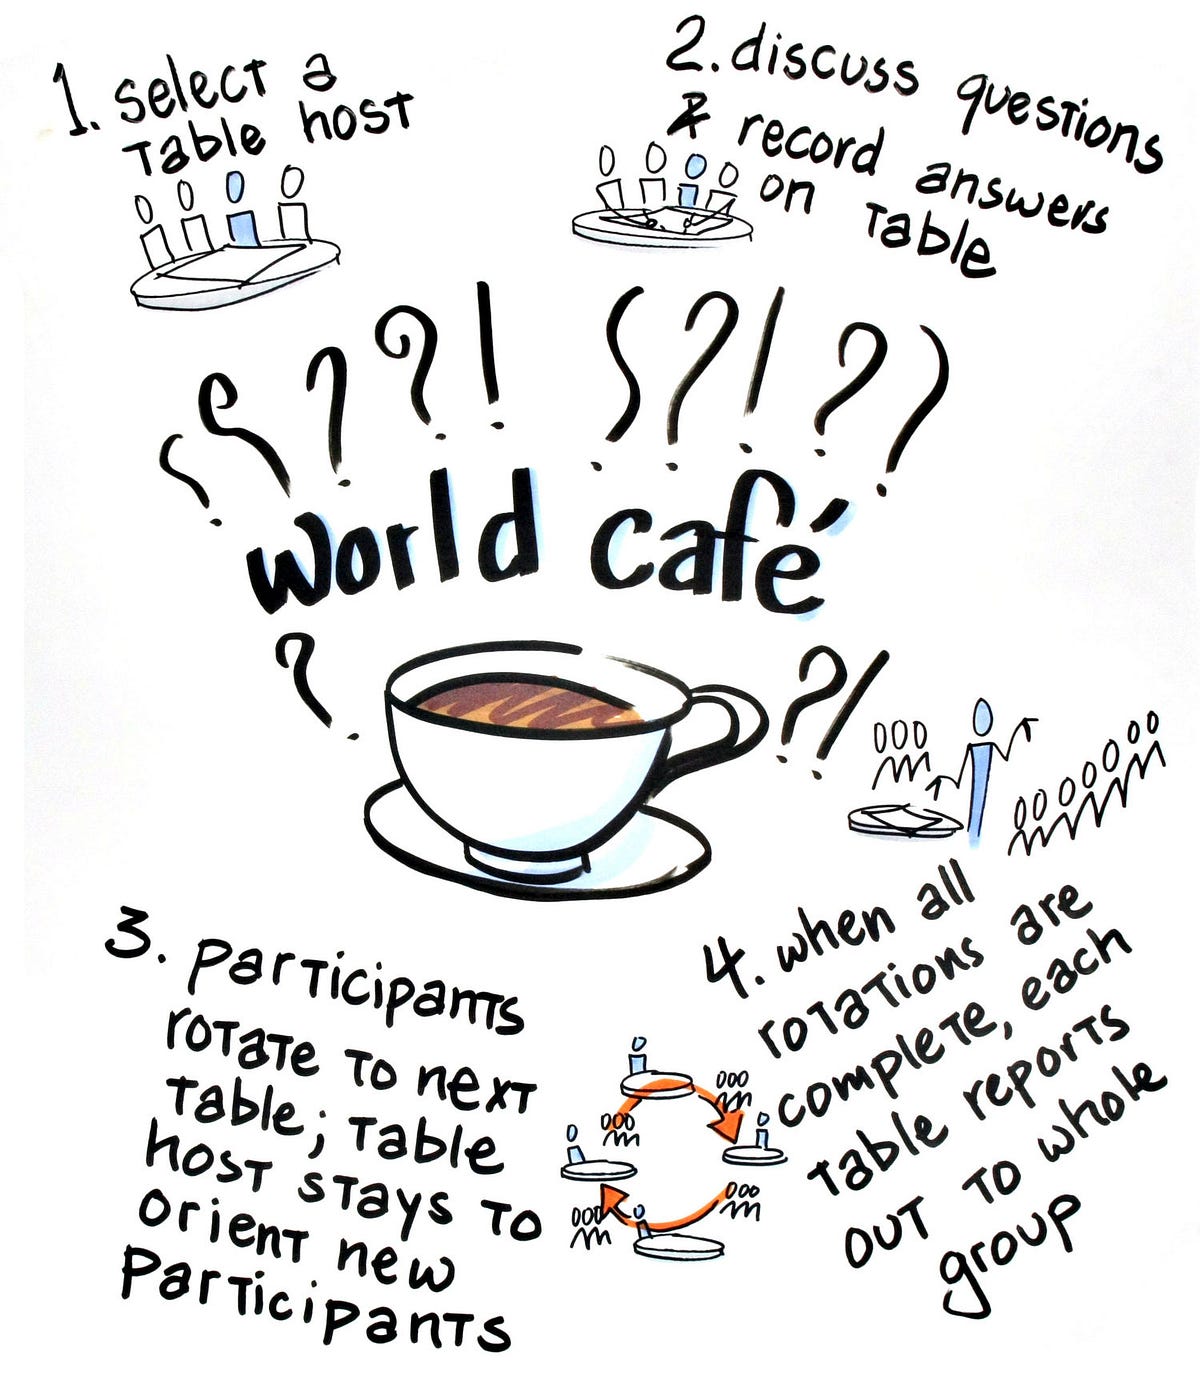 1. select a
table host
2. discuss questions
& record answers
on table
? ? ? ! ? ! ?
world café
? ? !
3. participants
rotate to next
table; table
host stays to
orient new
participants
4. when all
rotations are
complete, each
table reports
out to whole
group